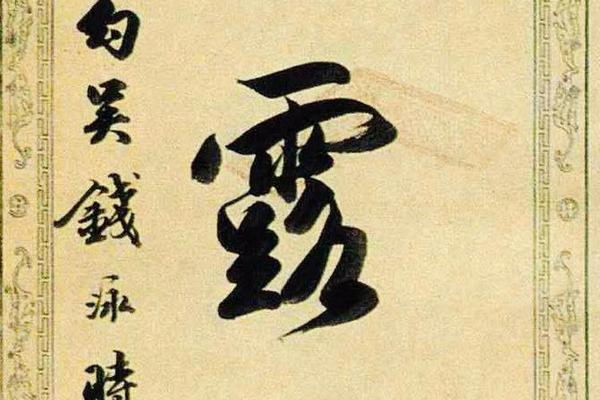 露
勾吳錢泳時